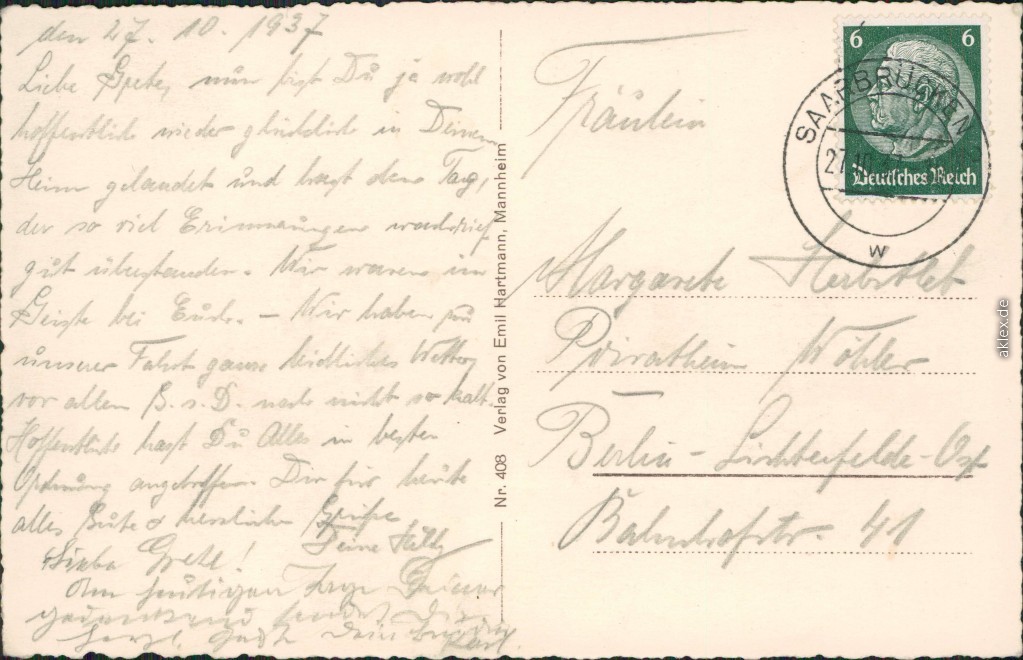 den 27. 10. 1937
Liebe Grete, nun bist Du ja wohl
hoffentlich wieder glücklich in Deinem
Heim gelandet und hast den Tag,
der so viel Erinnerungen
gut überstanden. Wir waren im
Geiste bei Euch. — Wir haben zu
unserer Fahrt ganz leidliches Wetter
vor allem noch nicht so kalt.
Hoffentlich hast Du Alles in bester
Ordnung angetroffen. Dir für heute
alles Gute & herzliche Grüße
Deine
Liebe Gretl!
Am heutigen Tage Deiner
gedenkend sendet Dir
herzl. Dein Bruder
Karl.
Nr. 408 Verlag von Emil Hartmann, Mannheim
6 6
Deutsches Reich
SAARBRÜCKEN
27.10.37
W
Fräulein
Margarete Herbstleb
Wöhler
Berlin - Lichterfelde-Ost
Bahnhofstr. 41
aklex.de